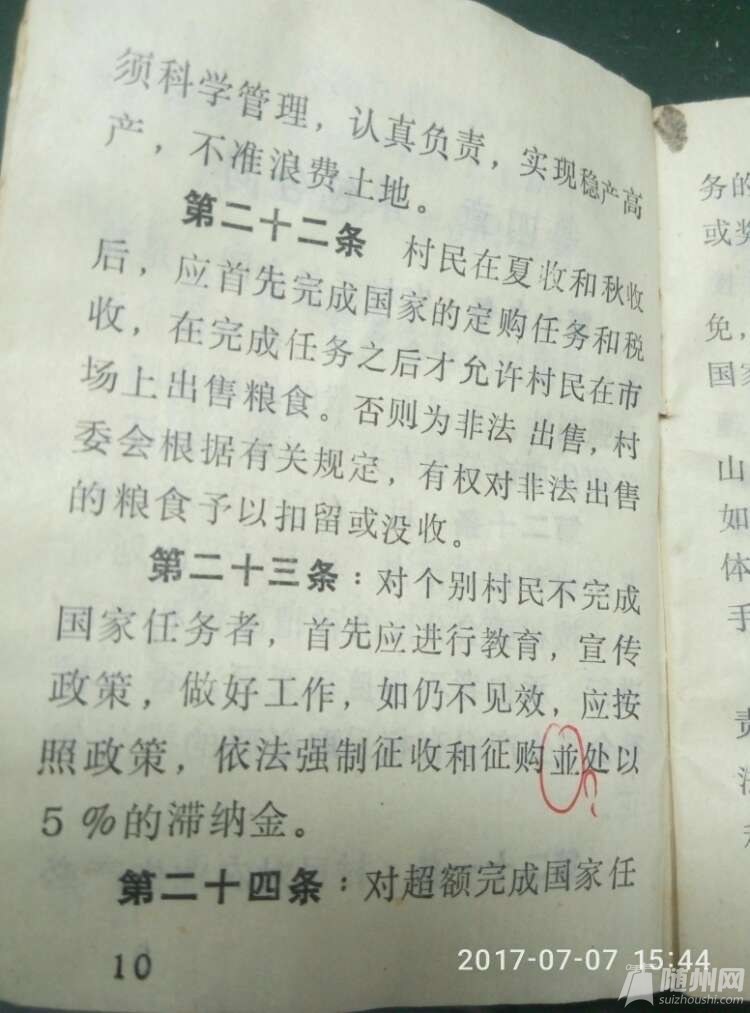 须科学管理，认真负责，实现稳产高
产，不准浪费土地。
第二十二条 村民在夏收和秋收
后，应首先完成国家的定购任务和税
收，在完成任务之后才允许村民在市
场上出售粮食。否则为非法 出售，村
委会根据有关规定，有权对非法出售
的粮食予以扣留或没收。
第二十三条：对个别村民不完成
国家任务者，首先应进行教育，宣传
政策，做好工作，如仍不见效，应按
照政策，依法强制征收和征购並处以
5%的滞纳金。
第二十四条：对超额完成国家任
10
务的
或奖
免，
国家
山
如
体
手
责
2017-07-07 15:44
随州网
suizhoushi.com